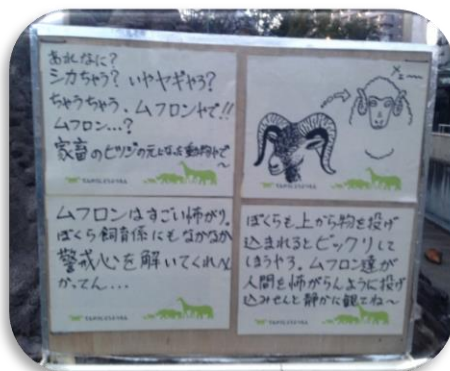 あれなに？
シカちゃう？いやヤギやろ？
ちゃうちゃう、ムフロンやで!!
ムフロン…？
家畜のヒツジの元となった動物やで〜
メェ〜
ムフロンはすごい怖がり。
ぼくら飼育係にもなかなか
警戒心を解いてくれへん
かってん…
ぼくらも上から物を投げ
込まれるとビックリして
しまうやろ。ムフロン達が
人間を怖がらんように投げ
込みせんと静かに観てね〜